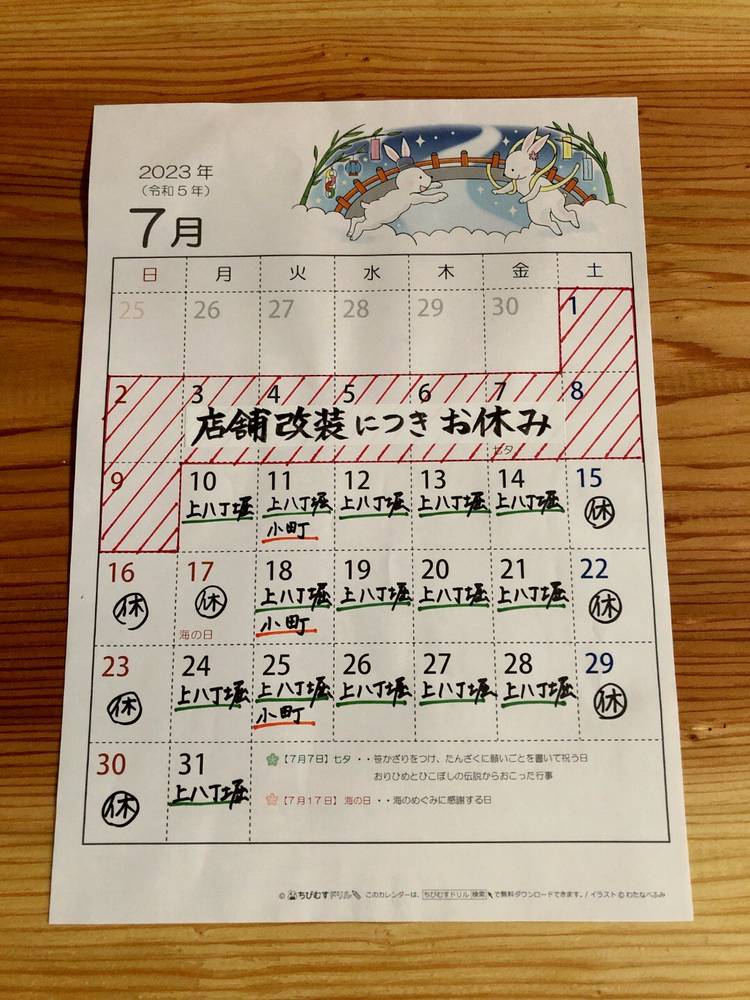 2023年
(令和5年)
7月
日 月 火 水 木 金 土
25 26 27 28 29 30 1
2 3 4 5 6 7 8
店舗改装につきお休み
七夕
9 10 11 12 13 14 15
上八丁堀 上八丁堀 上八丁堀 上八丁堀 上八丁堀 休
小町
16 17 18 19 20 21 22
休 休 上八丁堀 上八丁堀 上八丁堀 上八丁堀 休
海の日 小町
23 24 25 26 27 28 29
休 上八丁堀 上八丁堀 上八丁堀 上八丁堀 上八丁堀 休
小町
30 31
休 上八丁堀
【7月7日】七夕・・笹かざりをつけ、たんざくに願いごとを書いて祝う日
おりひめとひこぼしの伝説からおこった行事
【7月17日】海の日・・海のめぐみに感謝する日
© ちびむすドリル このカレンダーは、ちびむすドリル 検索 で無料ダウンロードできます。/ イラスト © わたなべふみ